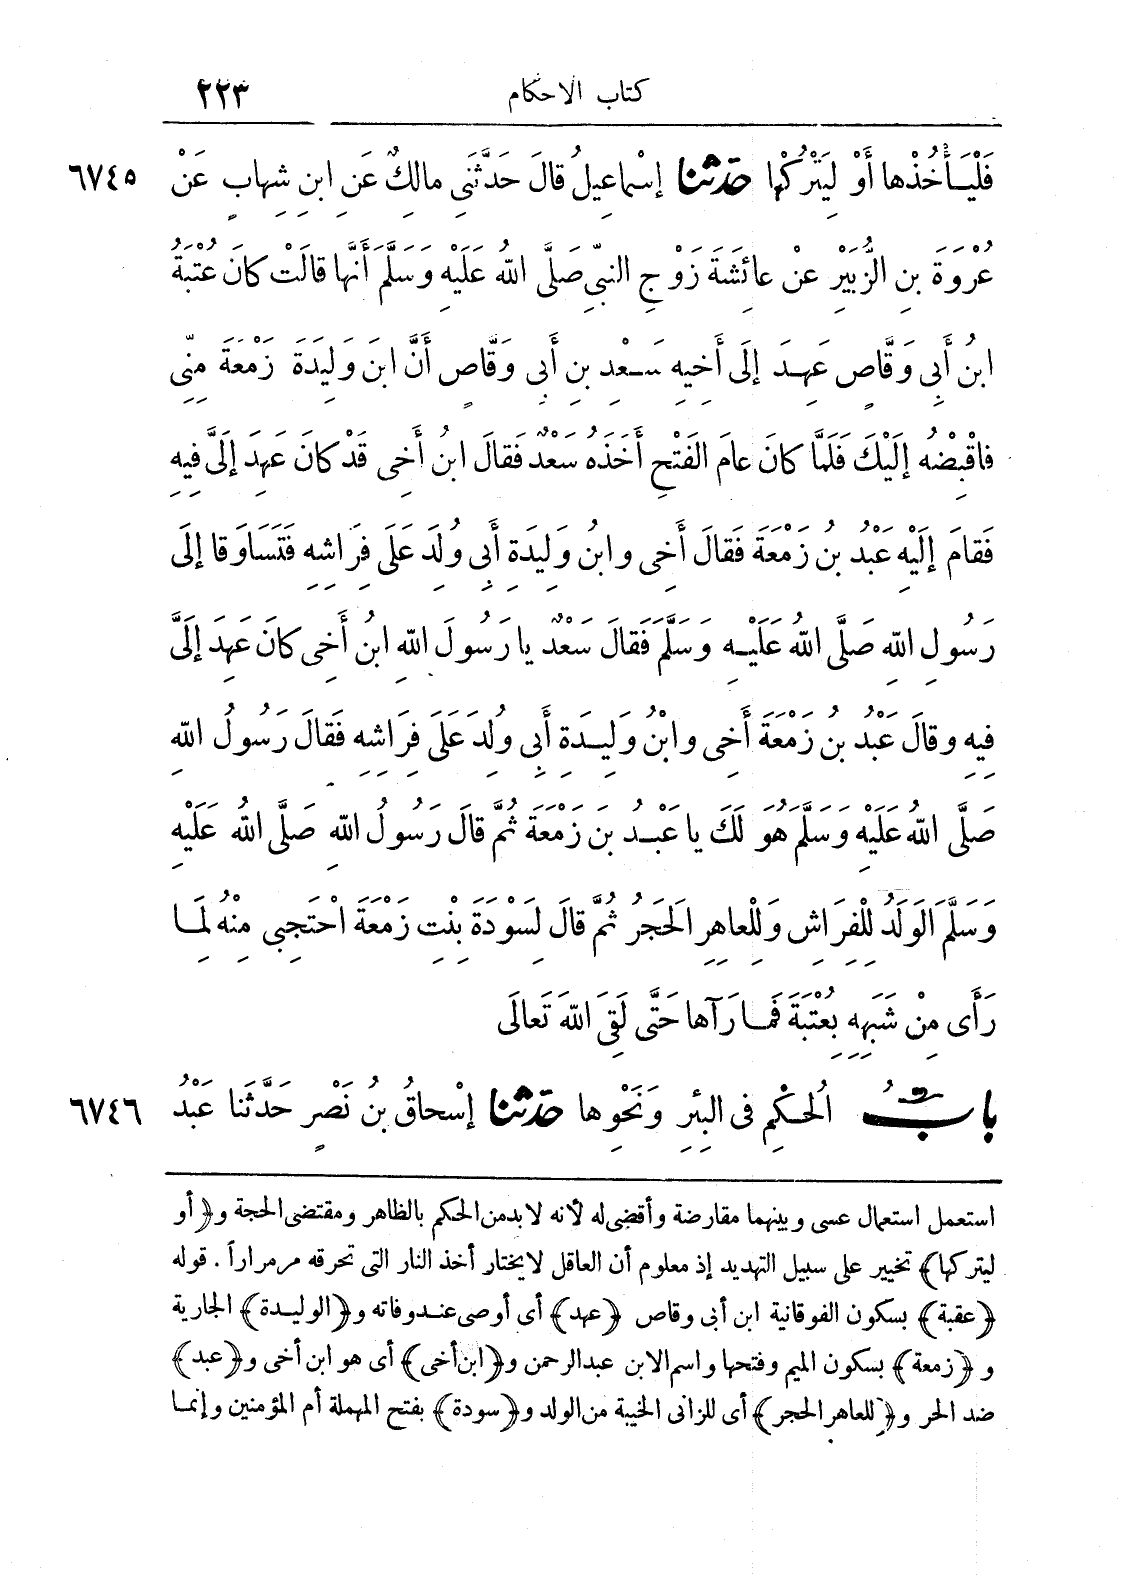 كتاب الاحكام ٢٢٣
فَلْيَأْخُذْها أَوْ لِيَتْرُكْها حدثنا إسْماعِيلُ قالَ حَدَّثَنِى مالِكٌ عَنِ ابنِ شِهابٍ عَنْ ٦٧٤٥
عُرْوَةَ بنِ الزُّبَيْرِ عنْ عائِشَةَ زَوْجِ النبىِّ صَلَّى اللهُ عَلَيْهِ وَسَلَّمَ أَنَّها قالَت كانَ عُتْبَةُ
ابنُ أَبِى وَقَّاصٍ عَهِدَ إلَى أَخِيهِ سَعْدِ بنِ أَبِى وَقَّاصٍ أَنَّ ابنَ وَلِيدَةَ زَمْعَةَ مِنِّى
فاقْبِضْهُ إلَيْكَ فَلَمَّا كانَ عامَ الفَتْحِ أَخَذَهُ سَعْدٌ فَقالَ ابنُ أَخِى قَدْ كانَ عَهِدَ إلَىَّ فِيهِ
فَقامَ إلَيْهِ عَبْدُ بنُ زَمْعَةَ فَقالَ أَخِى وابنُ وَلِيدَةِ أَبِى وُلِدَ عَلَى فِرَاشِهِ فَتَساوَقا إلَى
رَسُولِ اللهِ صَلَّى اللهُ عَلَيْهِ وَسَلَّمَ فَقالَ سَعْدٌ يا رَسُولَ اللهِ ابنُ أَخِى كانَ عَهِدَ إلَىَّ
فِيهِ وقالَ عَبْدُ بنُ زَمْعَةَ أَخِى وابْنُ وَلِيدَةِ أَبِى وُلِدَ عَلَى فِرَاشِهِ فَقالَ رَسُولُ اللهِ
صَلَّى اللهُ عَلَيْهِ وَسَلَّمَ هُوَ لَكَ يا عَبْدُ بنَ زَمْعَةَ ثُمَّ قالَ رَسُولُ اللهِ صَلَّى اللهُ عَلَيْهِ
وَسَلَّمَ الوَلَدُ لِلْفِرَاشِ وَلِلْعاهِرِ الحَجَرُ ثُمَّ قالَ لِسَوْدَةَ بِنْتِ زَمْعَةَ احْتَجِبِى مِنْهُ لِمَا
رَأَى مِنْ شَبَهِهِ بِعُتْبَةَ فَمَا رَآها حَتَّى لَقِىَ اللهَ تَعالَى
بابُ الحُكْمِ فى البِئْرِ وَنَحْوِها حدثنا إسْحاقُ بنُ نَصْرٍ حَدَّثَنا عَبْدُ ٦٧٤٦
استعمل استعمال عسى وبينهما مقارضة وأقضى له لأنه لا بد من الحكم بالظاهر ومقتضى الحجة و﴿أو
ليتركها﴾ تخيير على سبيل التهديد إذ معلوم أن العاقل لا يختار أخذ النار التى تحرقه مرمراراً . قوله
﴿عقبة﴾ بسكون الفوقانية ابن أبى وقاص ﴿عهد﴾ أى أوصى عند وفاته و﴿الوليدة﴾ الجارية
و﴿زمعة﴾ بسكون الميم وفتحها واسم الابن عبد الرحمن و﴿ابن أخى﴾ أى هو ابن أخى و﴿عبد﴾
ضد الحر و﴿للعاهر الحجر﴾ أى للزانى الخيبة من الولد و﴿سودة﴾ بفتح المهملة أم المؤمنين وإنما